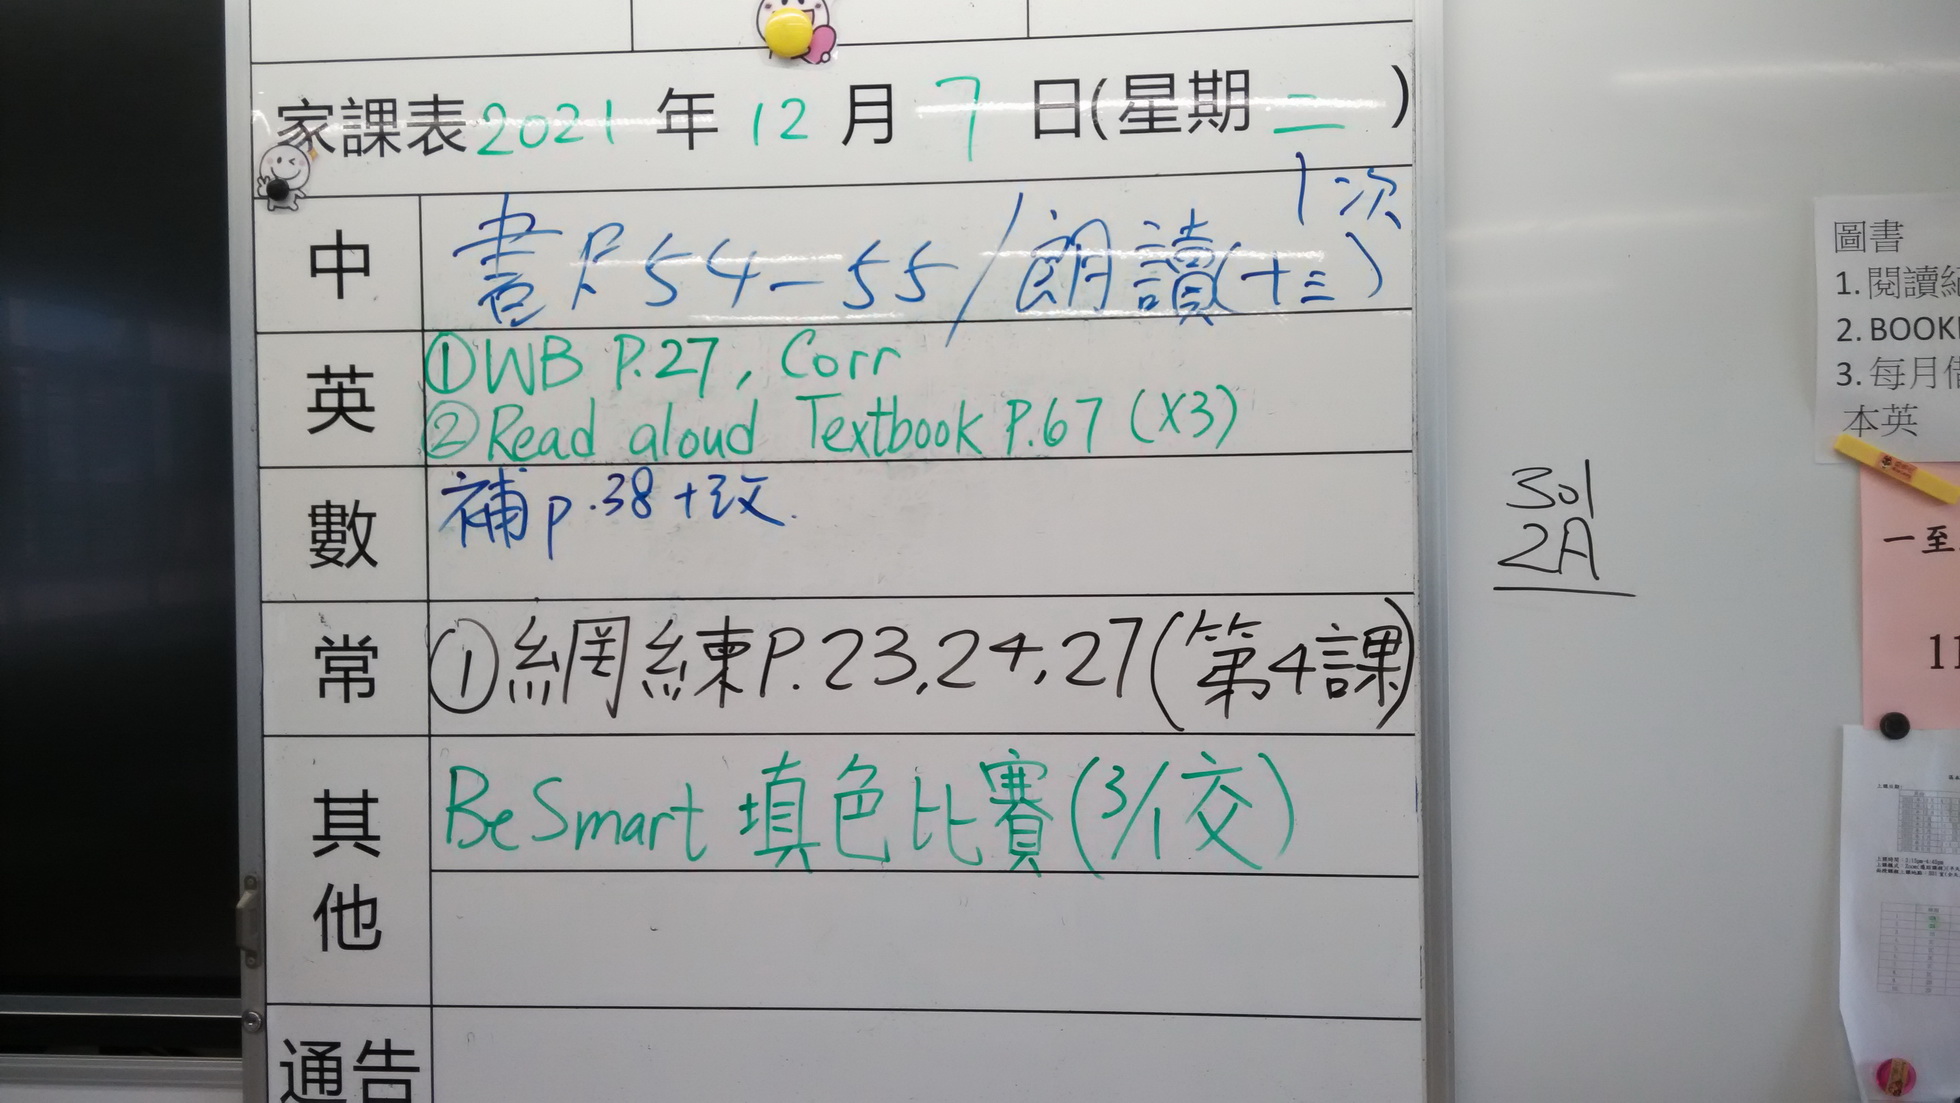 家課表 2021 年 12 月 7 日(星期 二 )
1次
中 書P.54-55/朗讀(十三)
英 ①WB P.27, Corr
②Read aloud Textbook P.67 (X3)
數 補p.38+改.
常 ①網練P.23,24,27(第4課)
其他 BeSmart 填色比賽(3/1交)
通告
301
2A
圖書
1.閱讀紀
2.BOOK
3.每月借
本英
一至
11